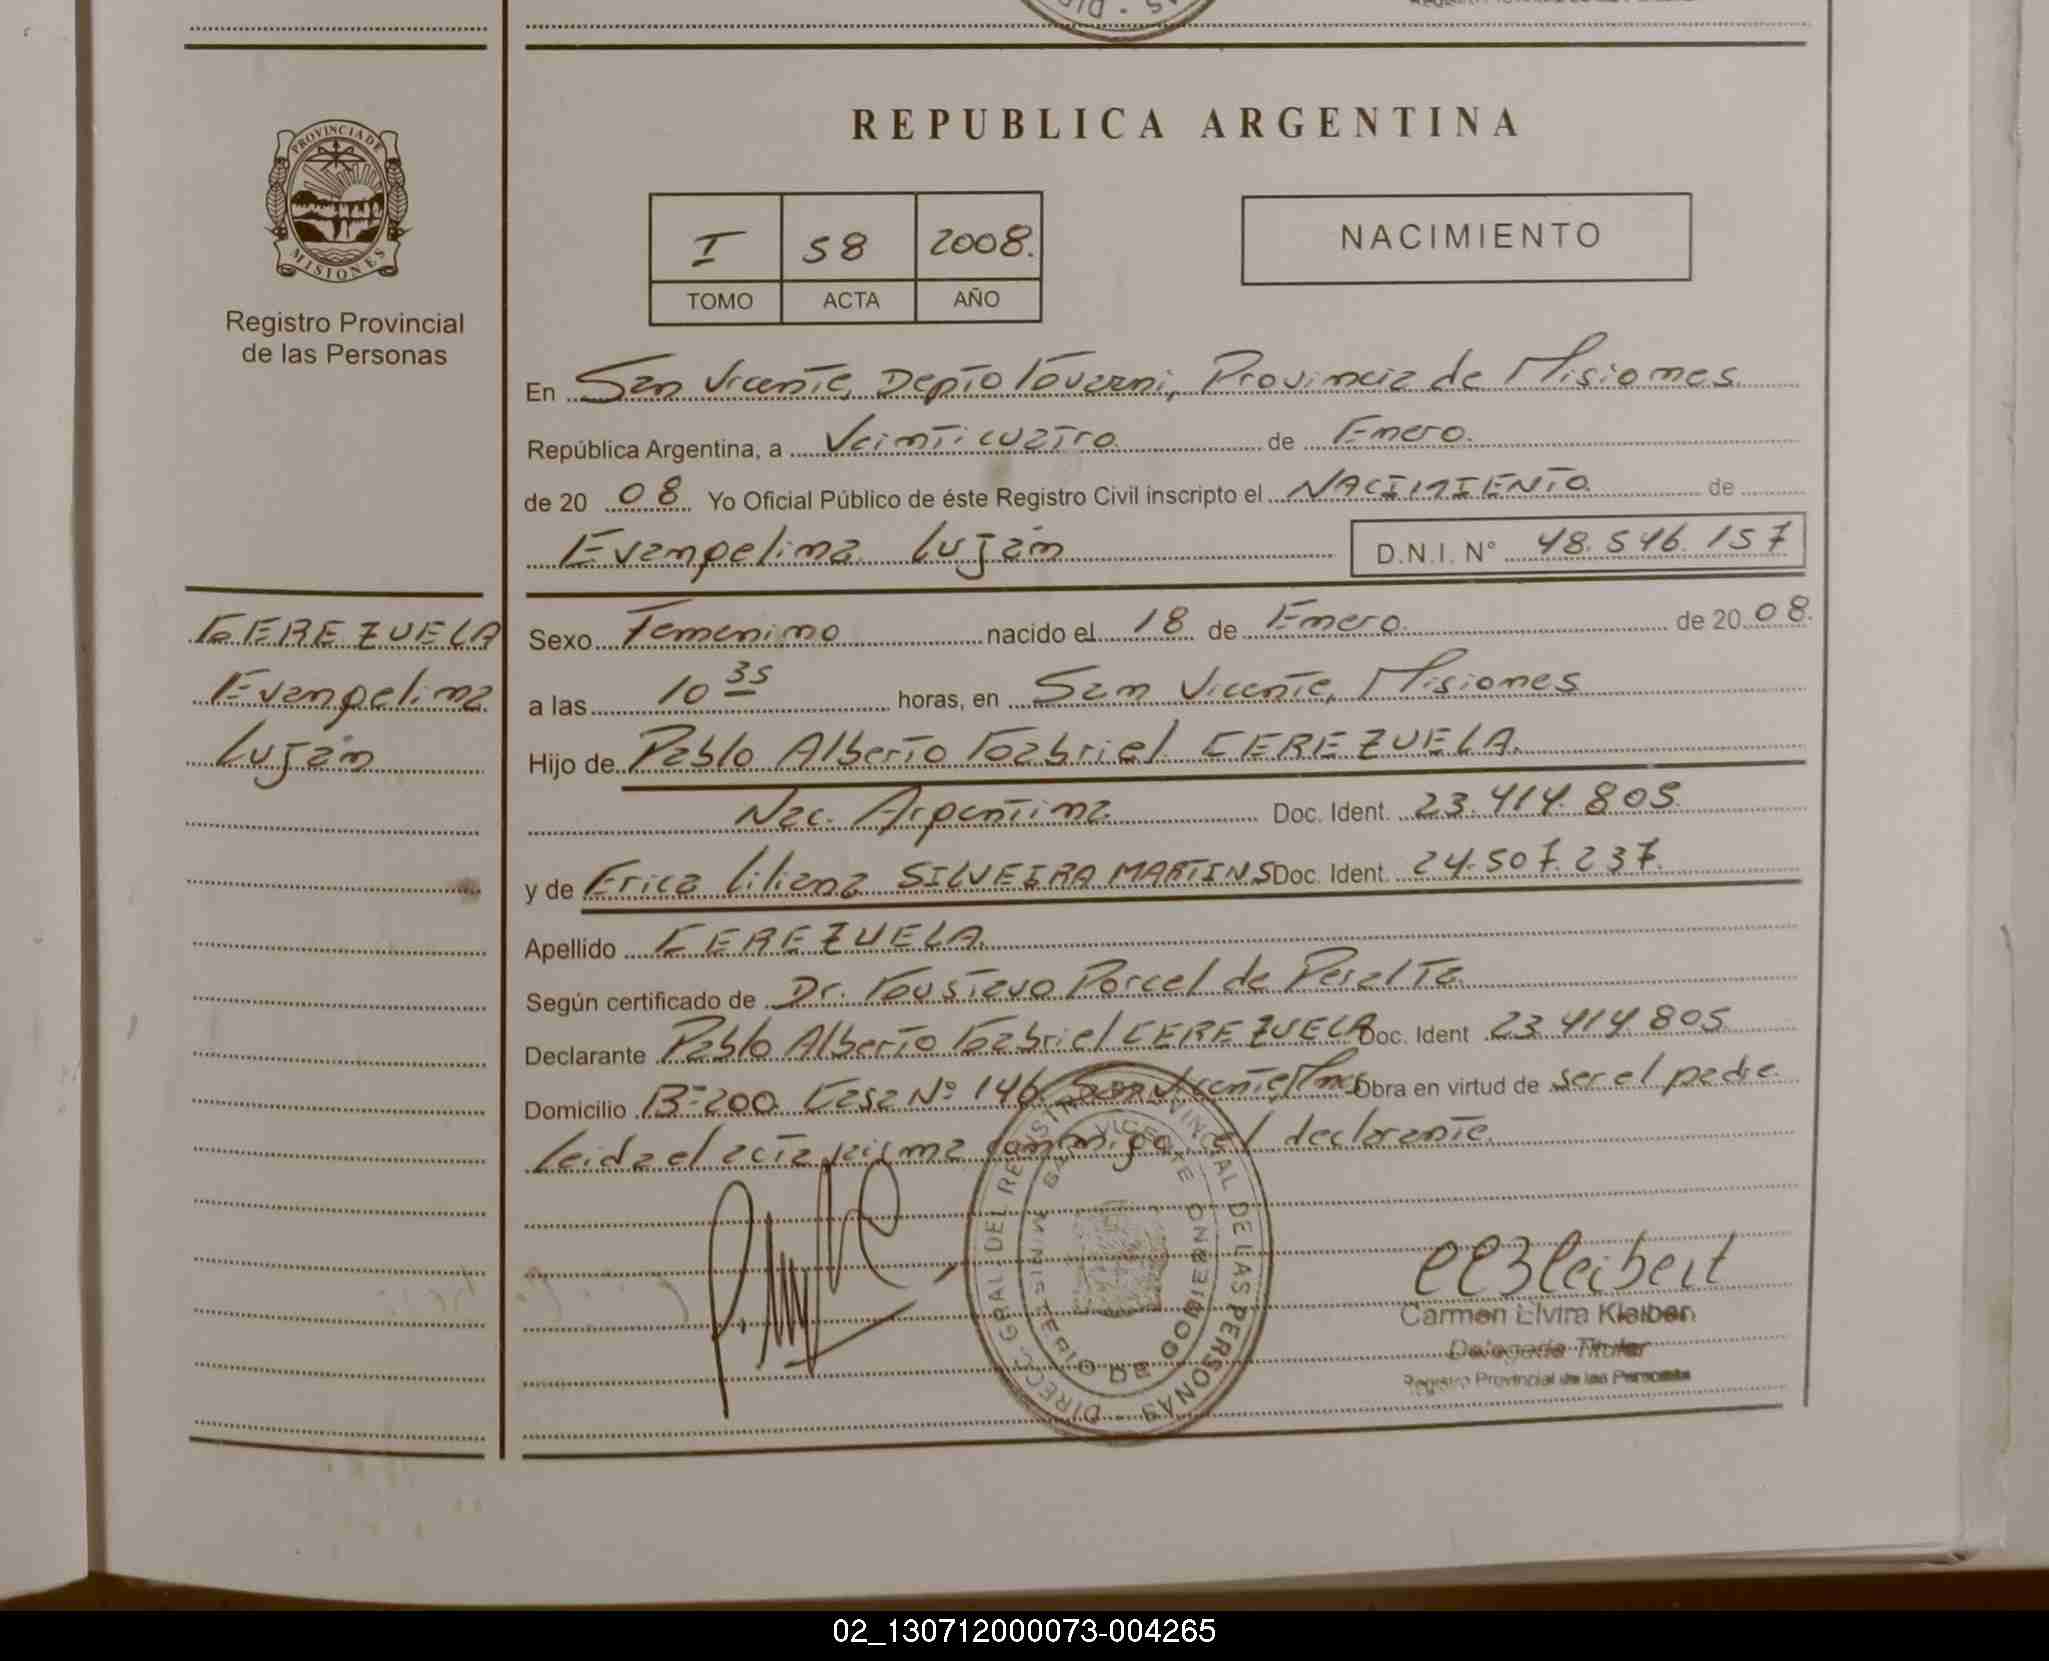 REPUBLICA ARGENTINA
PROVINCIA DE
MISIONES
Registro Provincial
de las Personas
I 58 2008.
TOMO ACTA AÑO
NACIMIENTO
En San Vicente, Depto Guarani, Provincia de Misiones
República Argentina, a Veinticuatro de Enero.
de 20 08 Yo Oficial Público de éste Registro Civil inscripto el NACIMIENTO de
Evangelina Luján D.N.I. N° 48.546.157
CEREZUELA
Evangelina
Luján
Sexo Femenino nacido el 18 de Enero. de 20 08.
a las 10 35 horas, en San Vicente, Misiones
Hijo de Pablo Alberto Gabriel CEREZUELA.
Nac. Argentina Doc. Ident. 23.414.805
y de Erica Liliana SILVEIRA MARTINS Doc. Ident. 24.507.237.
Apellido CEREZUELA
Según certificado de Dr. Gustavo Porcel de Peralta
Declarante Pablo Alberto Gabriel CEREZUELA Doc. Ident 23.414.805
Domicilio B°200 Casa N° 146 San Vicente Mnes Obra en virtud de ser el padre
leida el acta firma conmigo el declarante.
DIRECC. GRAL DEL REGISTRO PROVINCIAL DE LAS PERSONAS
SAN VICENTE
MINISTERIO DE GOBIERNO
Carmen Elvira Kleibert
Delegada Titular
Registro Provincial de las Personas
02_130712000073-004265